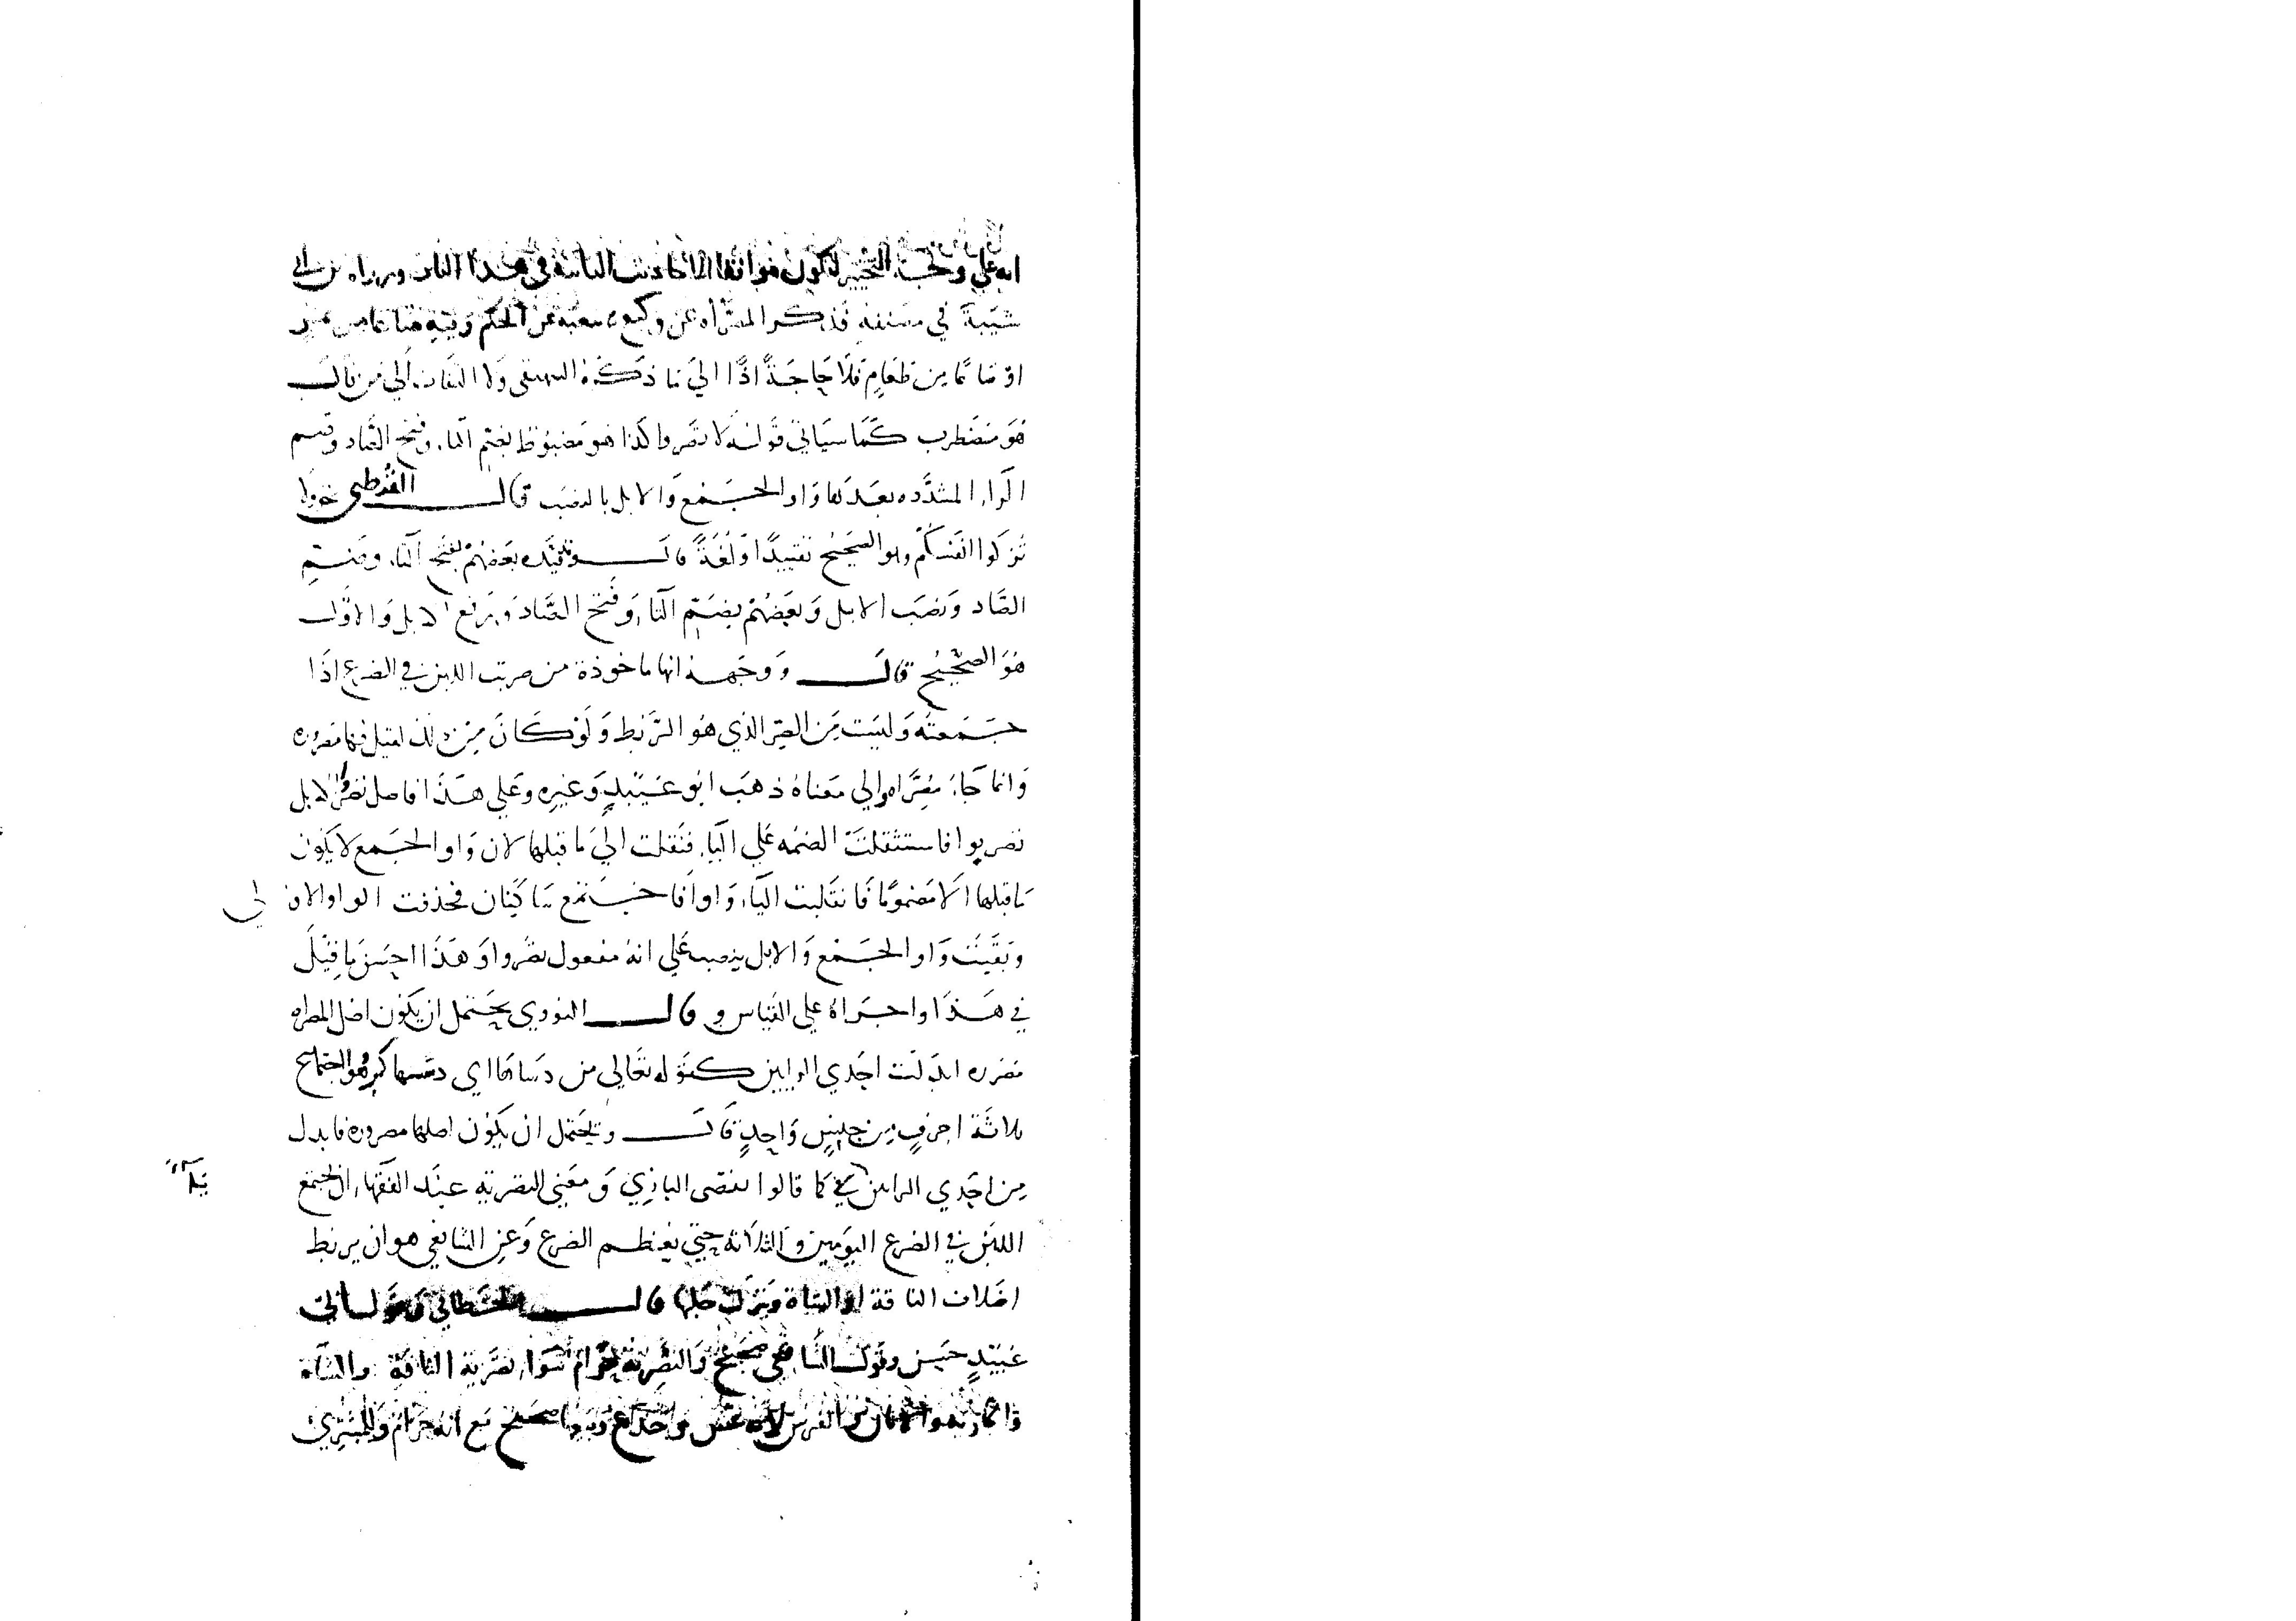 انه علي وجه التخيير لتكون موافقا للاحاديث الثابتة في هذا الباب ورواه بن ابي
شيبة في مصنفه فذكر المصراه عن وكيع شعبه عن الحكم وفيه صاعا من تمر
او صاعا من طعام فلا حاجة اذا الي ما ذكره البيهقي ولا التفات الي من قال
هو مضطرب كما سياتي قوله لا تصروا كذا هو مضبوط بضم التاء وفتح الصاد وضم
الراء المشدده بعدها واو الجمع والابل بالنصب قال القرطبي نحو لا
تزكوا انفسكم وهو الصحيح تقييدا ولغة قال وقيده بعضهم بفتح التاء وضم
الصاد ونصب الابل وبعضهم بضم التاء وفتح الصاد وبرفع الابل والاول
هو الصحيح قال ووجهه انها ماخوذة من صريت اللبن في الضرع اذا
جمعته وليست من الصر الذي هو الربط ولو كان من ذلك لقيل فيها مصروره
وانما جاء مصراه والي معناه ذهب ابو عبيد وغيره وعلي هذا فاصل تصروا الابل
تصريوا فاستثقلت الضمه علي الياء فنقلت الي ما قبلها لان واو الجمع لا يكون
ما قبلها الا مضموما فانقلبت الياء واوا فاجتمع ساكنان فحذفت الواو الاو لي
وبقيت واو الجمع والابل ينصب علي انه مفعول تصروا وهذا احسن ما قيل
في هذا واجراه علي القياس وقال النووي يحتمل ان يكون اصل المصراه
مصرره ابدلت احدي الرايين كقوله تعالي من دساها اي دسسها كرهوا اجتماع
ثلاثة احرف من جنس واحد قال ويحتمل ان يكون اصلها مصروره فابدل
من احدي الراين ياء كما قالوا تقضي البازي ومعني التصريه عند الفقهاء ان يجمع
اللبن في الضرع اليومين والثلاثه حتي يعظم الضرع وعن الشافعي هو ان يربط
اخلاف الناقة او الشاة ويترك حلبها قال الخطابي وقول ابي
عبيد حسن وقول الشافعي صحيح والتصرية حرام سواء تصرية الناقة والشاة
لانه غش وخداع وبيعها صحيح مع انه حرام وللمشتري